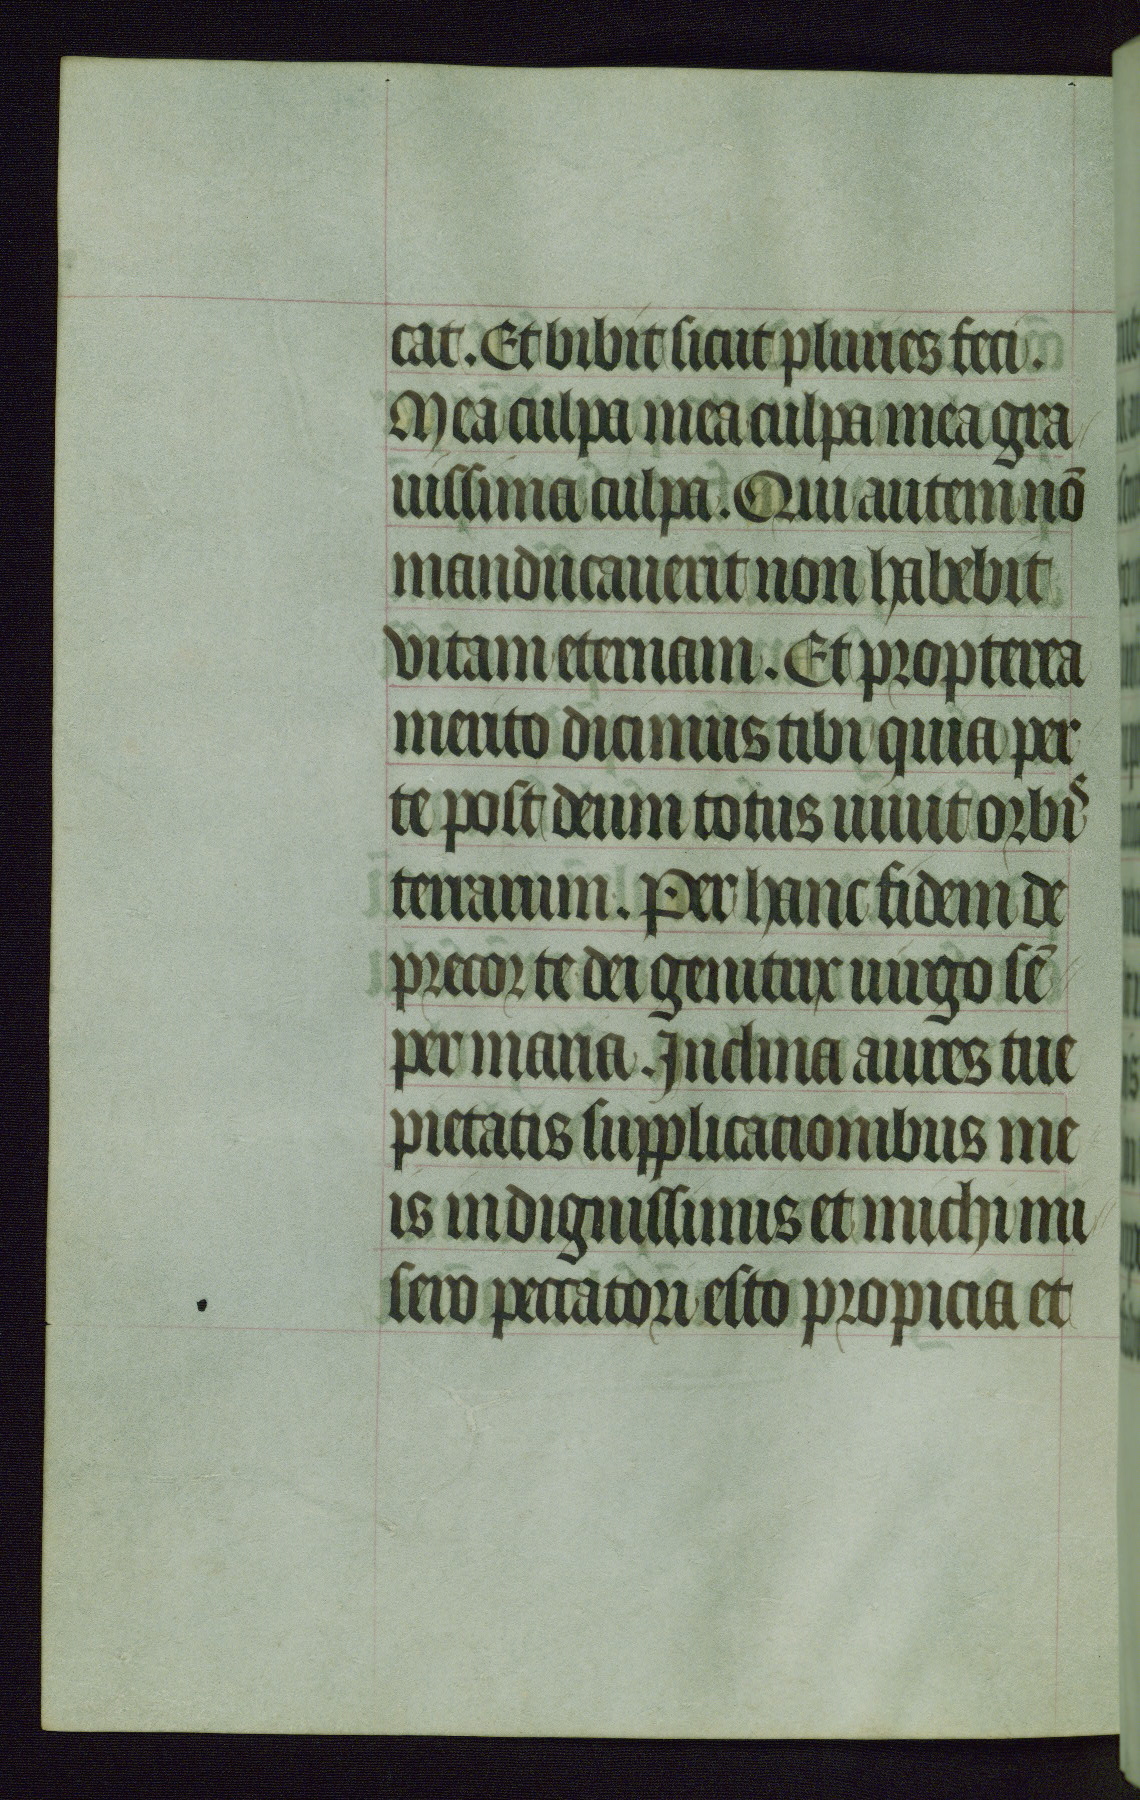 cat. Et bibit sicut pluries feci.
Mea culpa mea culpa mea gra
uissima culpa. Qui autem nō
manducauerit non habebit
vitam eternam. Et propterea
merito dicimus tibi quia per
te post deum totus uiuit orbis
terrarum. Per hanc fidem de
precor te dei genitrix uirgo sē
per maria. Inclina aures tue
pietatis supplicacionibus me
is indignissimis et michi mi
sero peccatori esto propicia et